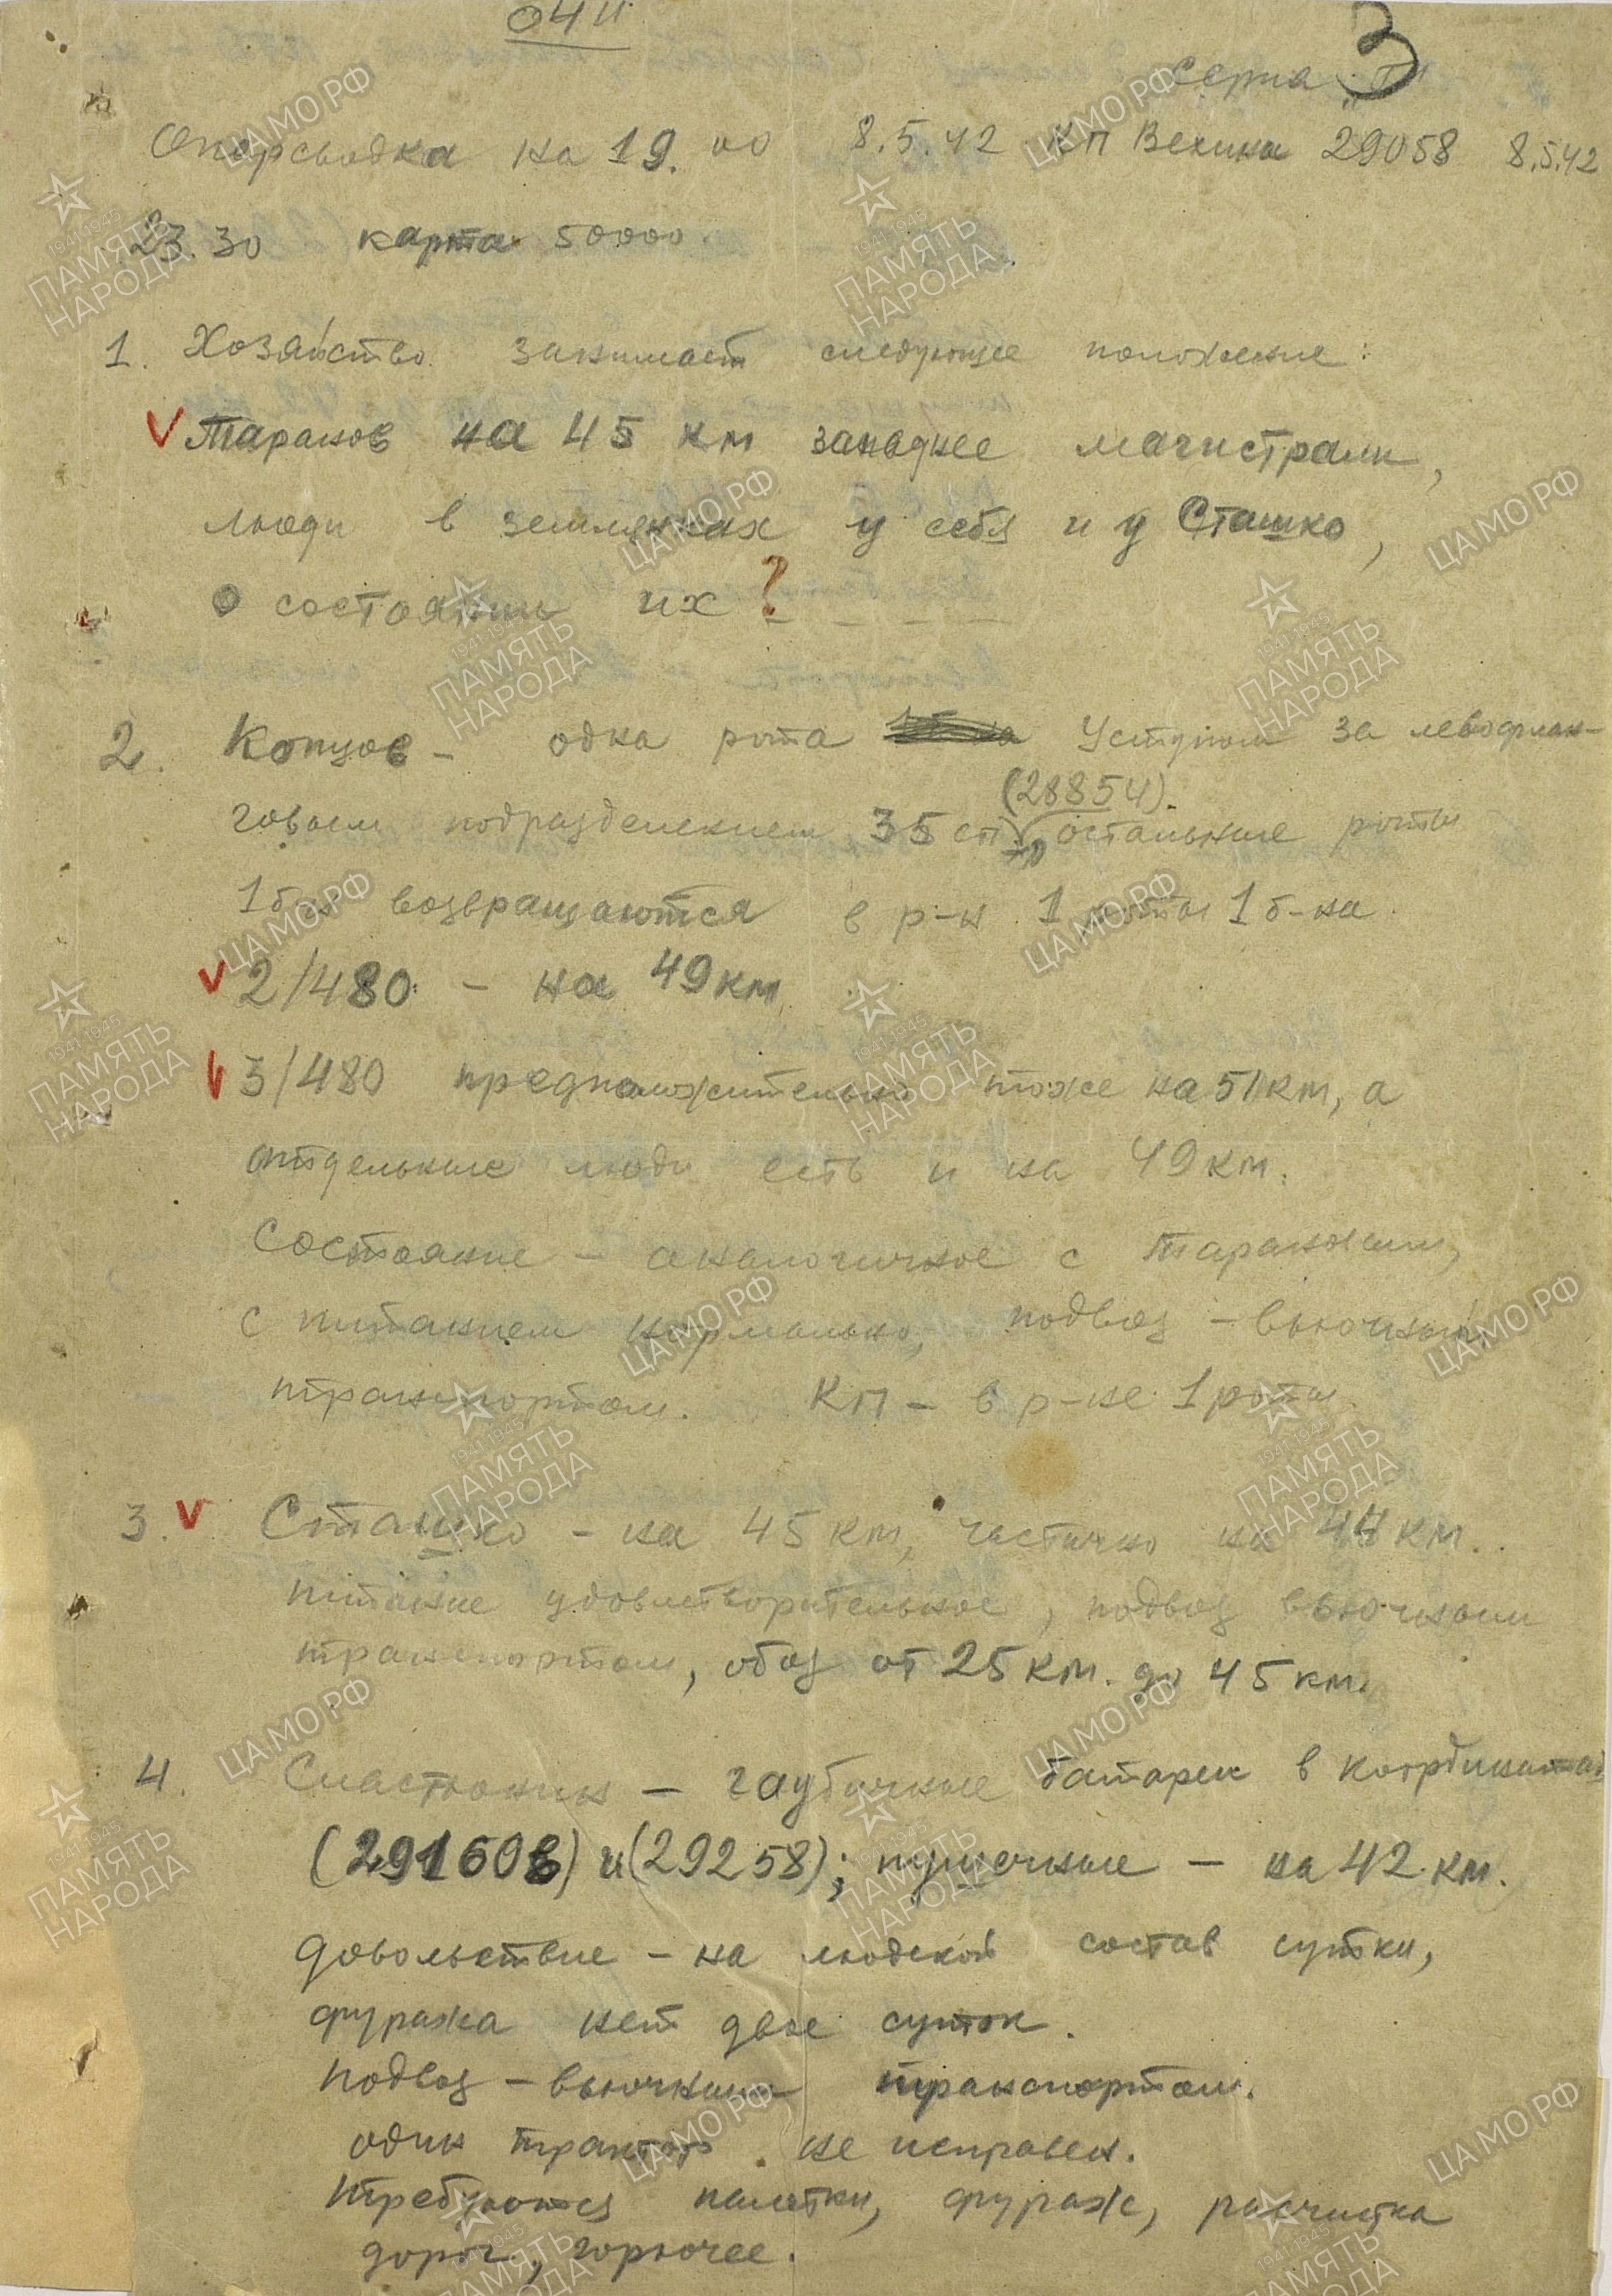 04 11
3
серия
Оперсводка на 19.00 8.5.42 КП Векина 29058 8.5.42
23.30 карта 50000.
1. Хозяйство занимает следующее положение:
V Таранов на 45 км западнее магистрали,
люди в землянках у себя и у Сташко,
о состоянии их ? – – – –
2. Копцов – одна рота уступом за левофлан-
(28854).
говым подразделением 35 сп, остальные роты
1 б-на возвращаются в р-н 1 роты 1 б-на.
V 2/480 – на 49 км
V 3/480 предположительно тоже на 51 км, а
отдельные люди есть и на 49 км.
Состояние – аналогичное с Тарановым,
с питанием нормально, подвоз – вьючным
транспортом. КП – в р-не 1 роты.
3. V Сташко – на 45 км, частично на 44 км.
питание удовлетворительное, подвоз вьючным
транспортом, обоз от 25 км. до 45 км.
4. Сластюнин – гаубичные батареи в координатах
(291608) и (29258); пушечные – на 42 км.
довольствие – на людской состав сутки,
фуража нет двое суток.
подвоз – вьючным транспортом.
один трактор не исправен.
Требуются палатки, фураж, расчистка
дорог, горючее.
ЦАМО РФ
1941-1945
ПАМЯТЬ
НАРОДА